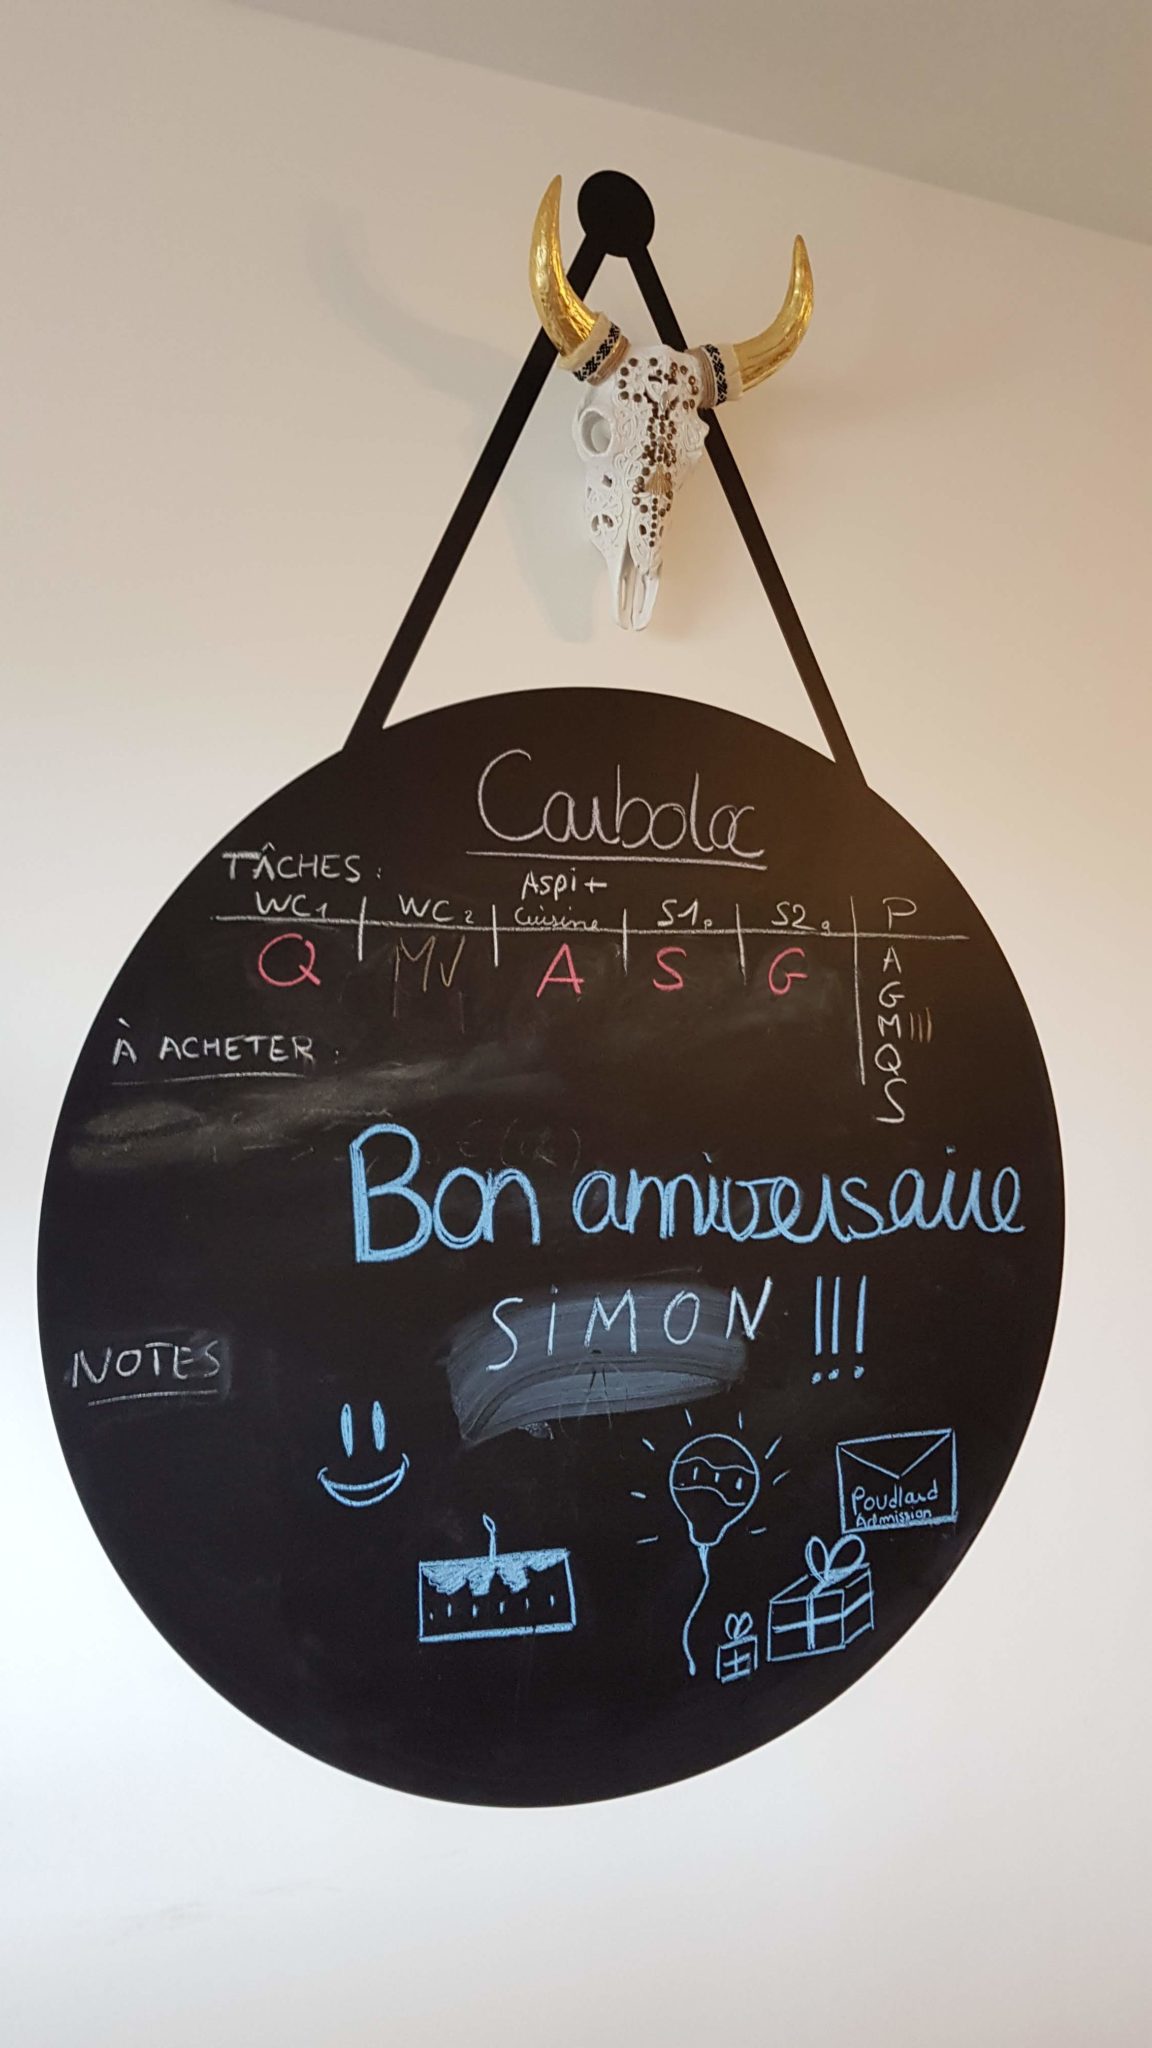 Caribolac
TÂCHES:
WC1 WC2 Aspi+ Cuisine S1 S2 P
Q MV A S G
A
G
M |||
Q
S
À ACHETER:
Bon anniversaire
SiMON !!!
NOTES
Poudlard
Admission